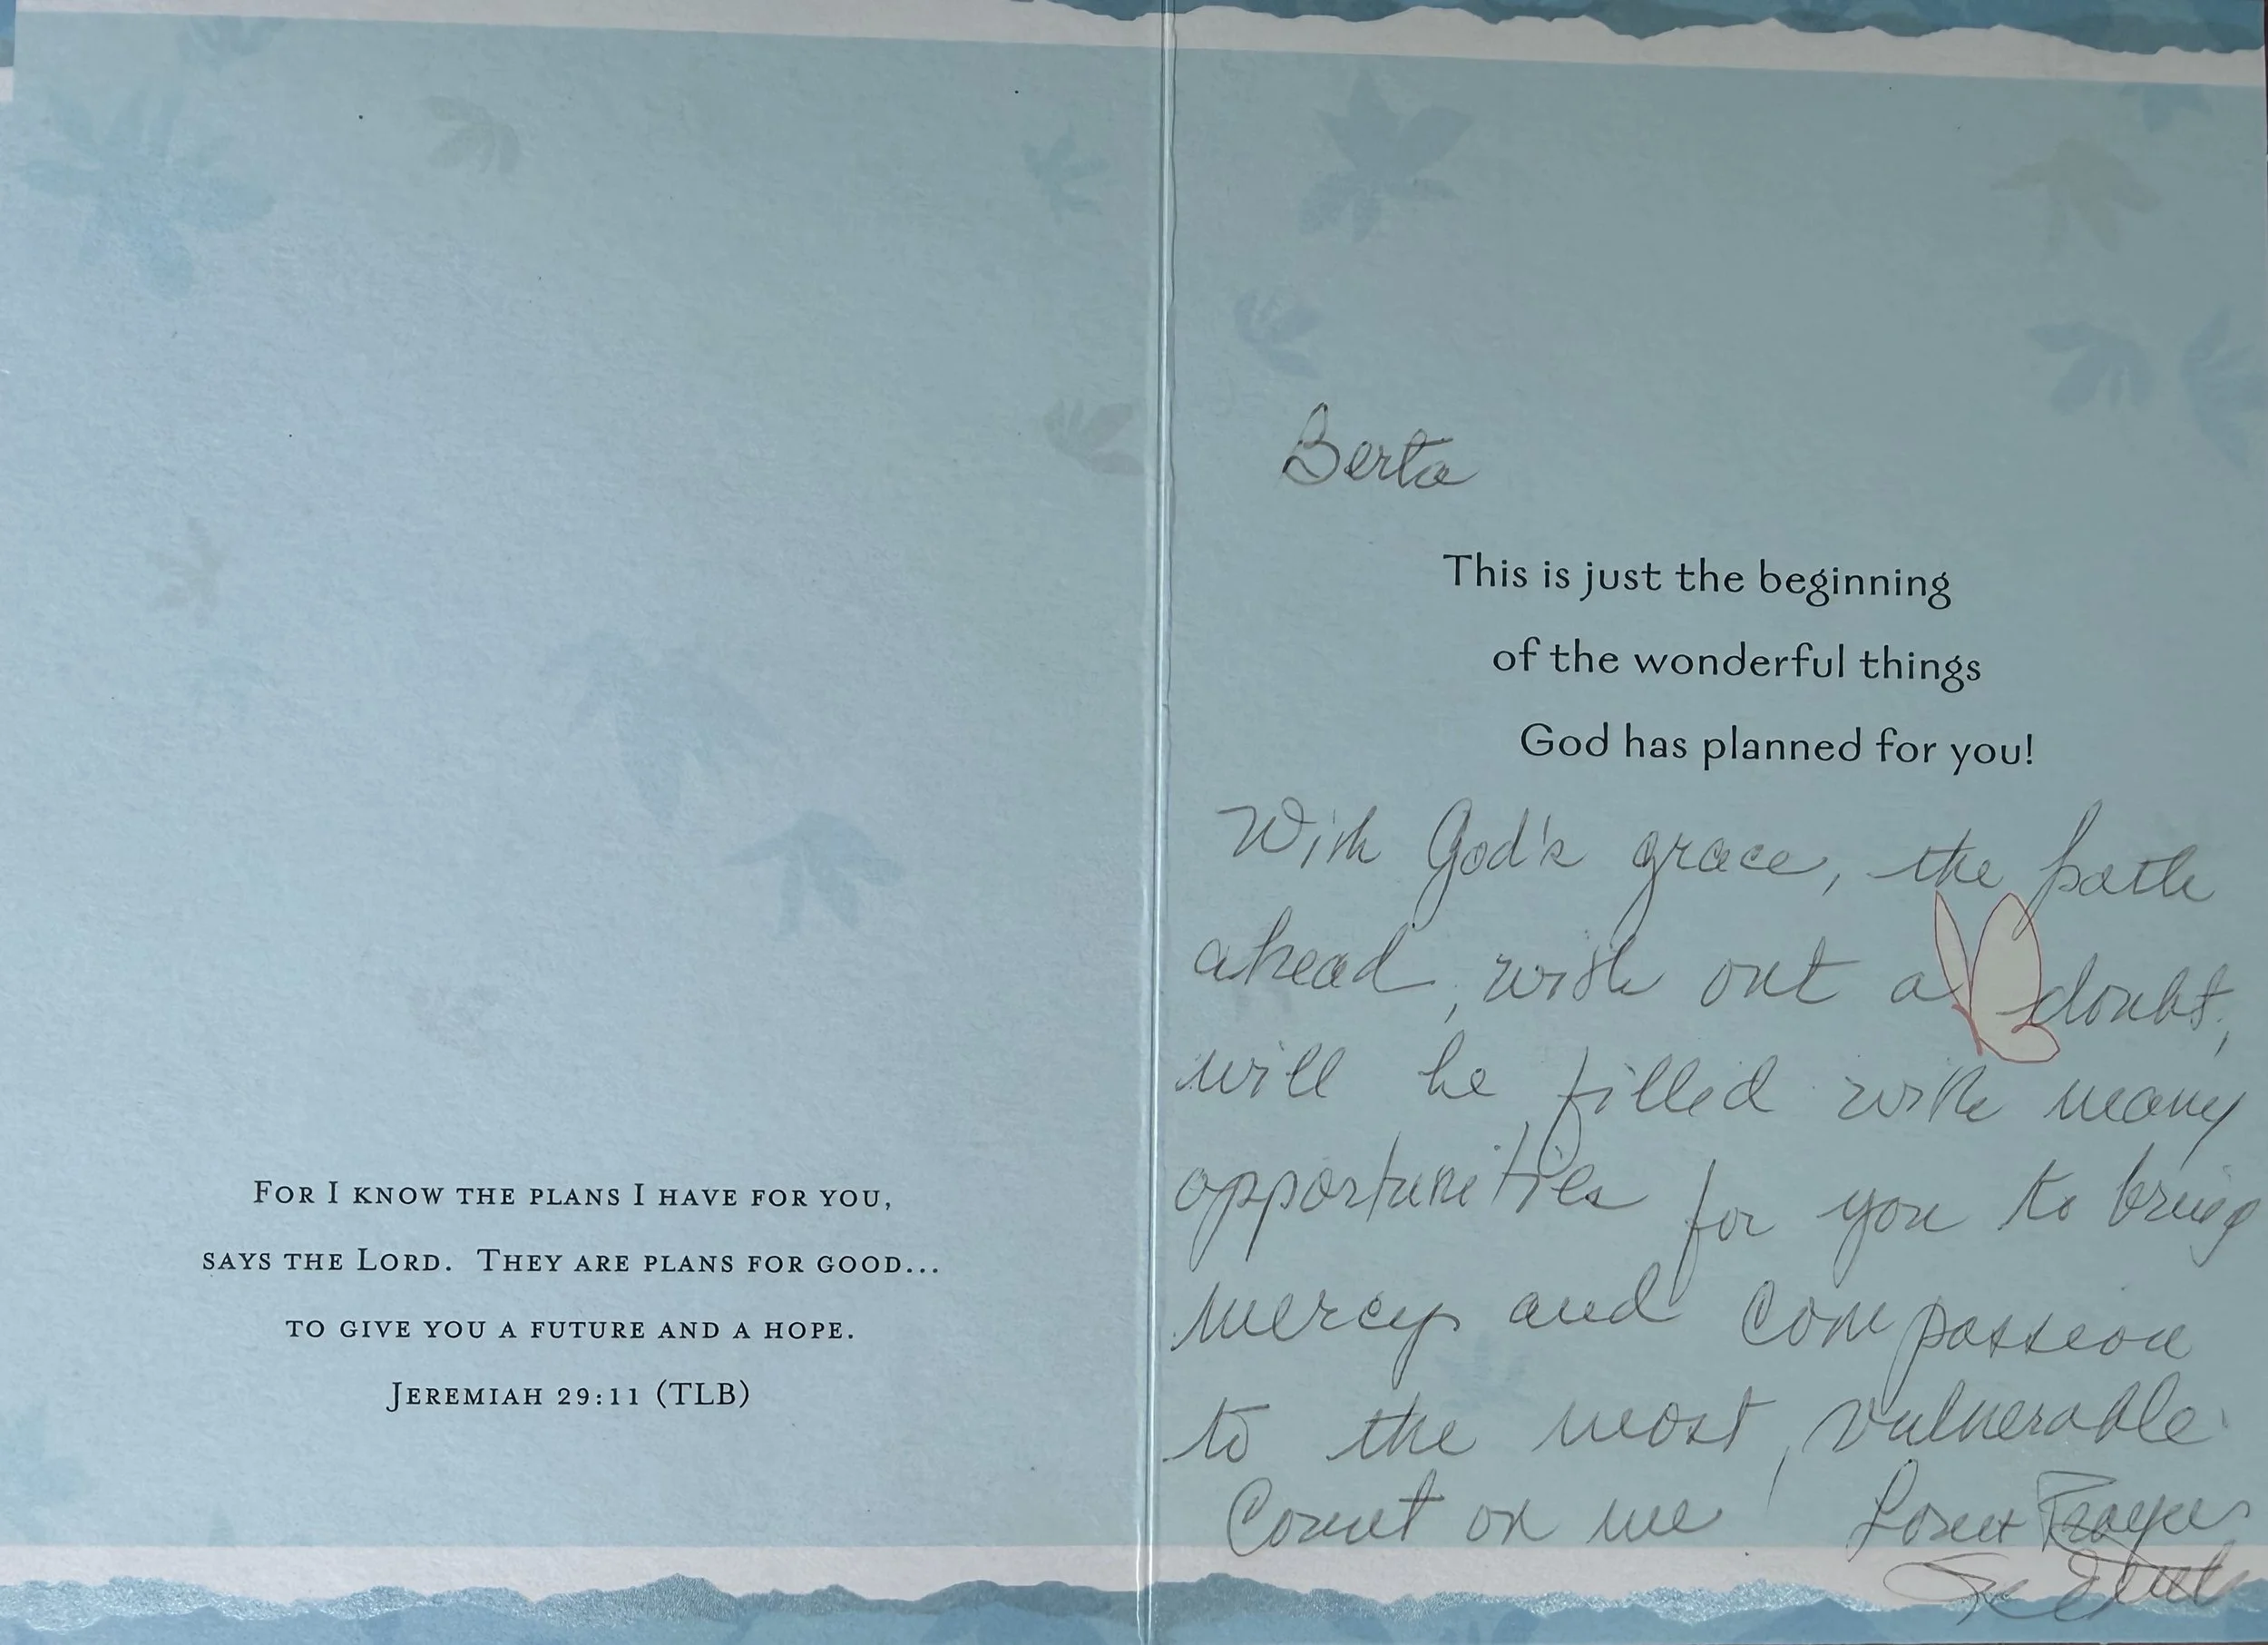 For I know the plans I have for you,
says the Lord. They are plans for good...
to give you a future and a hope.
Jeremiah 29:11 (TLB)
Berta
This is just the beginning
of the wonderful things
God has planned for you!
With God's grace, the path
ahead, with out a doubt,
will be filled with many
opportunities for you to bring
mercy and compassion
to the most vulnerable.
Count on me! Love & Prayers
Sr